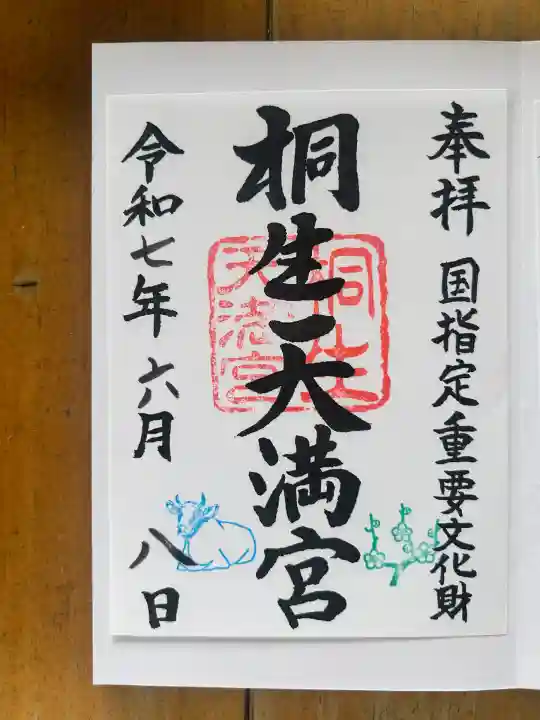 奉拝 国指定重要文化財
桐生天満宮
令和七年六月八日
桐生
天満宮